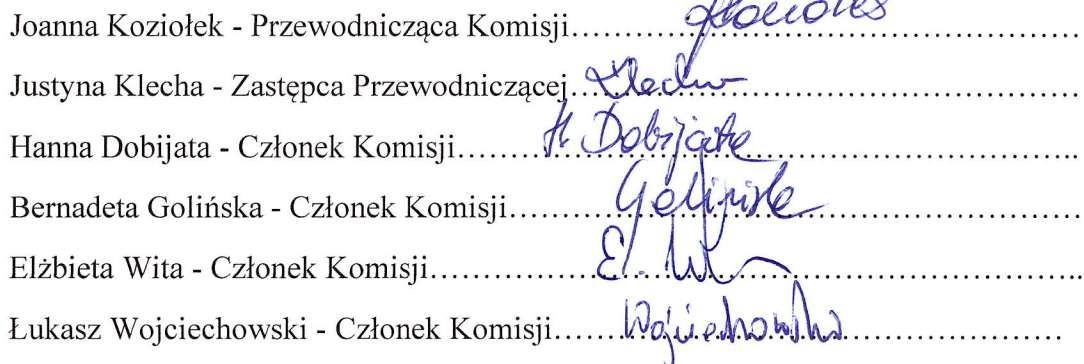 Joanna Koziołek - Przewodnicząca Komisji……………………………………………….
Justyna Klecha - Zastępca Przewodniczącej Klecha……………………………………….
Hanna Dobijata - Członek Komisji……… H Dobijata……………………………………..
Bernadeta Golińska - Członek Komisji………… Golińska………………………………
Elżbieta Wita - Członek Komisji……………… El. ……………………………………..
Łukasz Wojciechowski - Członek Komisji……… Wojciechowski……………………